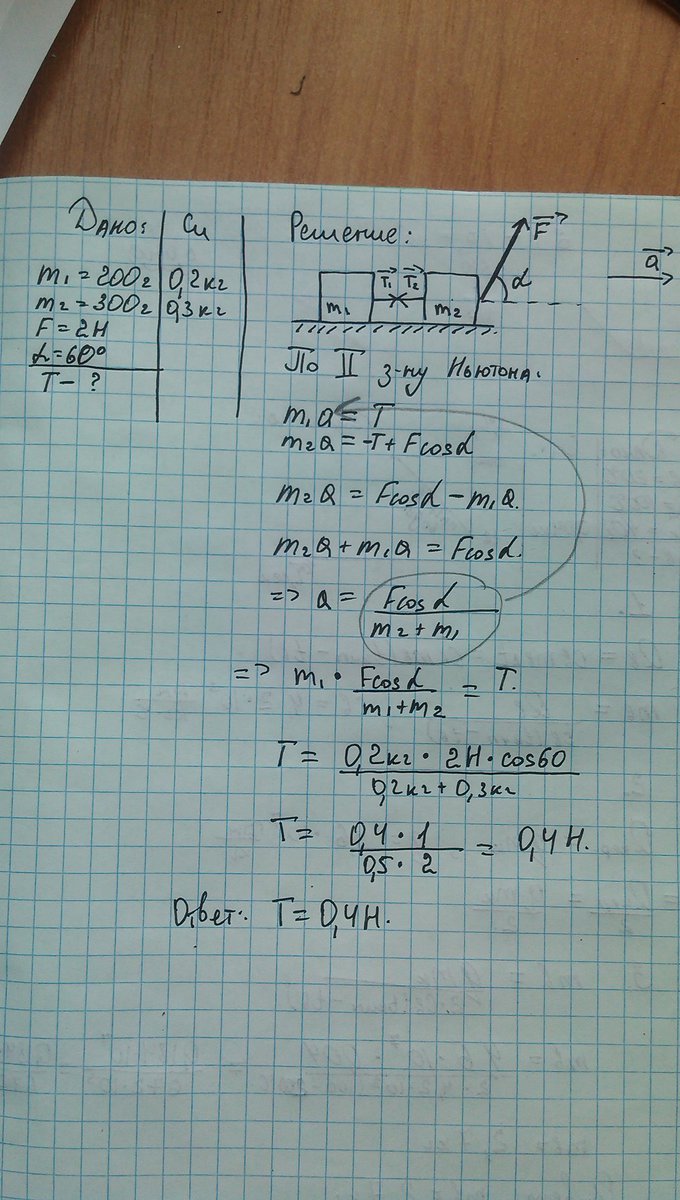 Дано:
Си
m₁ = 200г
0,2кг
m₂ = 300г
0,3кг
F = 2Н
α = 60°
T - ?
Решение:
m₁
T₁
T₂
m₂
F
α
a
По II з-ну Ньютона:
m₁a = T
m₂a = -T + Fcosα
m₂a = Fcosα - m₁a.
m₂a + m₁a = Fcosα.
=> a = Fcosα / m₂ + m₁
=> m₁ · Fcosα / m₁ + m₂ = T.
T = 0,2кг · 2Н · cos60 / 0,2кг + 0,3кг
T = 0,4 · 1 / 0,5 · 2 = 0,4Н.
Ответ: T = 0,4Н.